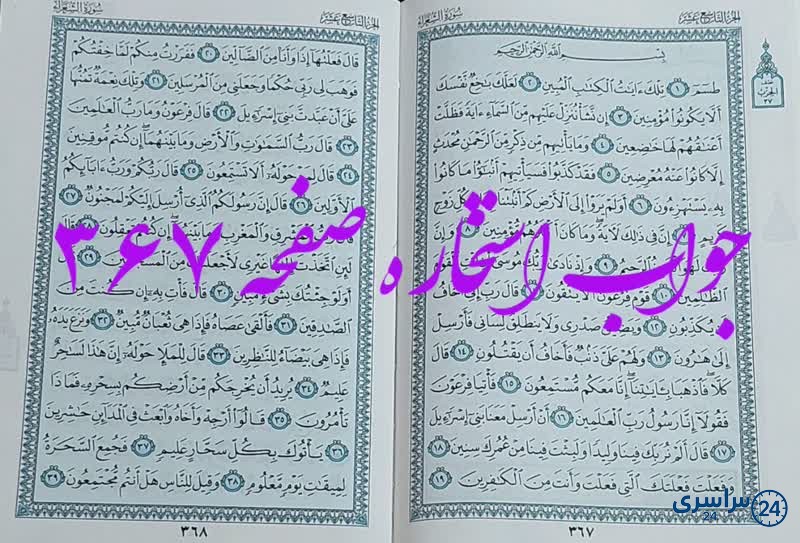 الجزء التاسع عشر سورة الشعراء
بِسْمِ اللَّهِ الرَّحْمَٰنِ الرَّحِيمِ
طسٓمٓ ١ تِلْكَ ءَايَٰتُ الْكِتَٰبِ الْمُبِينِ ٢ لَعَلَّكَ بَٰخِعٌ نَّفْسَكَ
أَلَّا يَكُونُوا۟ مُؤْمِنِينَ ٣ إِن نَّشَأْ نُنَزِّلْ عَلَيْهِم مِّنَ السَّمَآءِ ءَايَةً فَظَلَّتْ
أَعْنَٰقُهُمْ لَهَا خَٰضِعِينَ ٤ وَمَا يَأْتِيهِم مِّن ذِكْرٍ مِّنَ الرَّحْمَٰنِ مُحْدَثٍ
إِلَّا كَانُوا۟ عَنْهُ مُعْرِضِينَ ٥ فَقَدْ كَذَّبُوا۟ فَسَيَأْتِيهِمْ أَنۢبَٰٓؤُا۟ مَا كَانُوا۟
بِهِۦ يَسْتَهْزِءُونَ ٦ أَوَلَمْ يَرَوْا۟ إِلَى الْأَرْضِ كَمْ أَنۢبَتْنَا كُلِّ زَوْجٍ
كَرِيمٍ إِنَّ فِى ذَٰلِكَ لَءَايَةً وَمَا كَانَ أَكْثَرُهُم مُّؤْمِنِينَ ٨ وَإِنَّ
لَهُوَ الرَّحِيمُ ٩ وَإِذْ نَادَىٰ رَبُّكَ مُوسَىٰٓ
الظَّٰلِمِينَ ١٠ قَوْمَ فِرْعَوْنَ أَلَا يَتَّقُونَ قَالَ رَبِّ إِنِّىٓ أَخَافُ
أَن يُكَذِّبُونِ ١٢ وَيَضِيقُ صَدْرِى وَلَا يَنطَلِقُ لِسَانِى فَأَرْسِلْ
إِلَىٰ هَٰرُونَ ١٣ وَلَهُمْ عَلَىَّ ذَنۢبٌ فَأَخَافُ أَن يَقْتُلُونِ ١٤ قَالَ
كَلَّا فَاذْهَبَا بِـَٔايَٰتِنَآ إِنَّا مَعَكُم مُّسْتَمِعُونَ ١٥ فَأْتِيَا فِرْعَوْنَ
فَقُولَآ إِنَّا رَسُولُ رَبِّ الْعَٰلَمِينَ ١٦ أَنْ أَرْسِلْ مَعَنَا بَنِىٓ إِسْرَٰٓءِيلَ
١٧ قَالَ أَلَمْ نُرَبِّكَ فِينَا وَلِيدًا وَلَبِثْتَ فِينَا مِنْ عُمُرِكَ سِنِينَ ١٨
وَفَعَلْتَ فَعْلَتَكَ الَّتِى فَعَلْتَ وَأَنتَ مِنَ الْكَٰفِرِينَ ١٩
٣٦٧
الحزب
٣٧
الجزء التاسع عشر سورة الشعراء
قَالَ فَعَلْتُهَآ إِذًا وَأَنَا۠ مِنَ الضَّآلِّينَ ٢٠ فَفَرَرْتُ مِنكُمْ لَمَّا خِفْتُكُمْ
فَوَهَبَ لِى رَبِّى حُكْمًا وَجَعَلَنِى مِنَ الْمُرْسَلِينَ ٢١ وَتِلْكَ نِعْمَةٌ تَمُنُّهَا
عَلَىَّ أَنْ عَبَّدتَّ بَنِىٓ إِسْرَٰٓءِيلَ ٢٢ قَالَ فِرْعَوْنُ وَمَا رَبُّ الْعَٰلَمِينَ
٢٣ قَالَ رَبُّ السَّمَٰوَٰتِ وَالْأَرْضِ وَمَا بَيْنَهُمَآ إِن كُنتُم مُّوقِنِينَ
٢٤ قَالَ لِمَنْ حَوْلَهُۥٓ أَلَا تَسْتَمِعُونَ ٢٥ قَالَ رَبُّكُمْ وَرَبُّ ءَابَآئِكُمُ
الْأَوَّلِينَ ٢٦ قَالَ إِنَّ رَسُولَكُمُ الَّذِىٓ أُرْسِلَ إِلَيْكُمْ لَمَجْنُونٌ ٢٧
قَالَ رَبُّ الْمَشْرِقِ وَالْمَغْرِبِ وَمَا بَيْنَهُمَآ إِن كُنتُمْ تَعْقِلُونَ قَالَ
لَئِنِ اتَّخَذْتَ إِلَٰهًا غَيْرِى لَأَجْعَلَنَّكَ مِنَ الْمَسْجُونِينَ ٢٩
أَوَلَوْ جِئْتُكَ بِشَىْءٍ مُّبِينٍ ٣٠ قَالَ فَأْتِ بِهِۦٓ إِن كُنتَ مِنَ
الصَّٰدِقِينَ ٣١ فَأَلْقَىٰ عَصَاهُ فَإِذَا هِىَ ثُعْبَانٌ مُّبِينٌ ٣٢ وَنَزَعَ يَدَهُۥ
فَإِذَا هِىَ بَيْضَآءُ لِلنَّٰظِرِينَ ٣٣ قَالَ لِلْمَلَإِ حَوْلَهُۥٓ إِنَّ هَٰذَا لَسَٰحِرٌ
عَلِيمٌ ٣٤ يُرِيدُ أَن يُخْرِجَكُم مِّنْ أَرْضِكُم بِسِحْرِهِۦ فَمَاذَا
تَأْمُرُونَ ٣٥ قَالُوٓا۟ أَرْجِهْ وَأَخَاهُ وَابْعَثْ فِى الْمَدَآئِنِ حَٰشِرِينَ
٣٦ يَأْتُوكَ بِكُلِّ سَحَّارٍ عَلِيمٍ ٣٧ فَجُمِعَ السَّحَرَةُ
لِمِيقَٰتِ يَوْمٍ مَّعْلُومٍ ٣٨ وَقِيلَ لِلنَّاسِ هَلْ أَنتُم مُّجْتَمِعُونَ ٣٩
٣٦٨
جواب استخاره صفحه ۳۶۷
سراسری 24
24